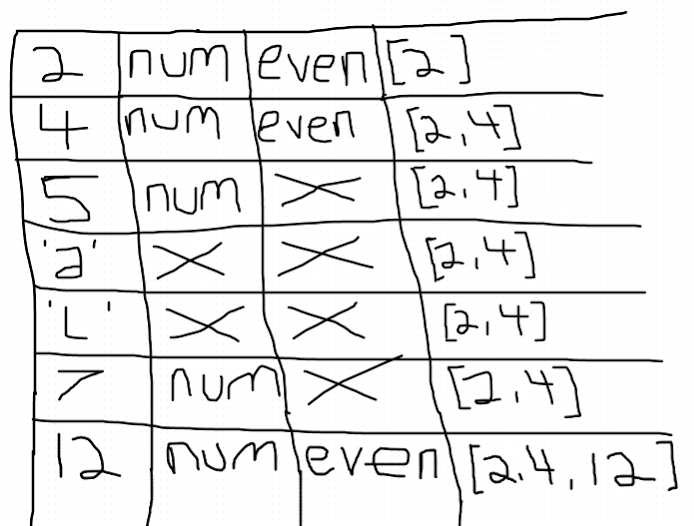 2 num even [2]
4 num even [2,4]
5 num × [2,4]
'a' × × [2,4]
'L' × × [2,4]
7 num × [2,4]
12 num even [2,4,12]